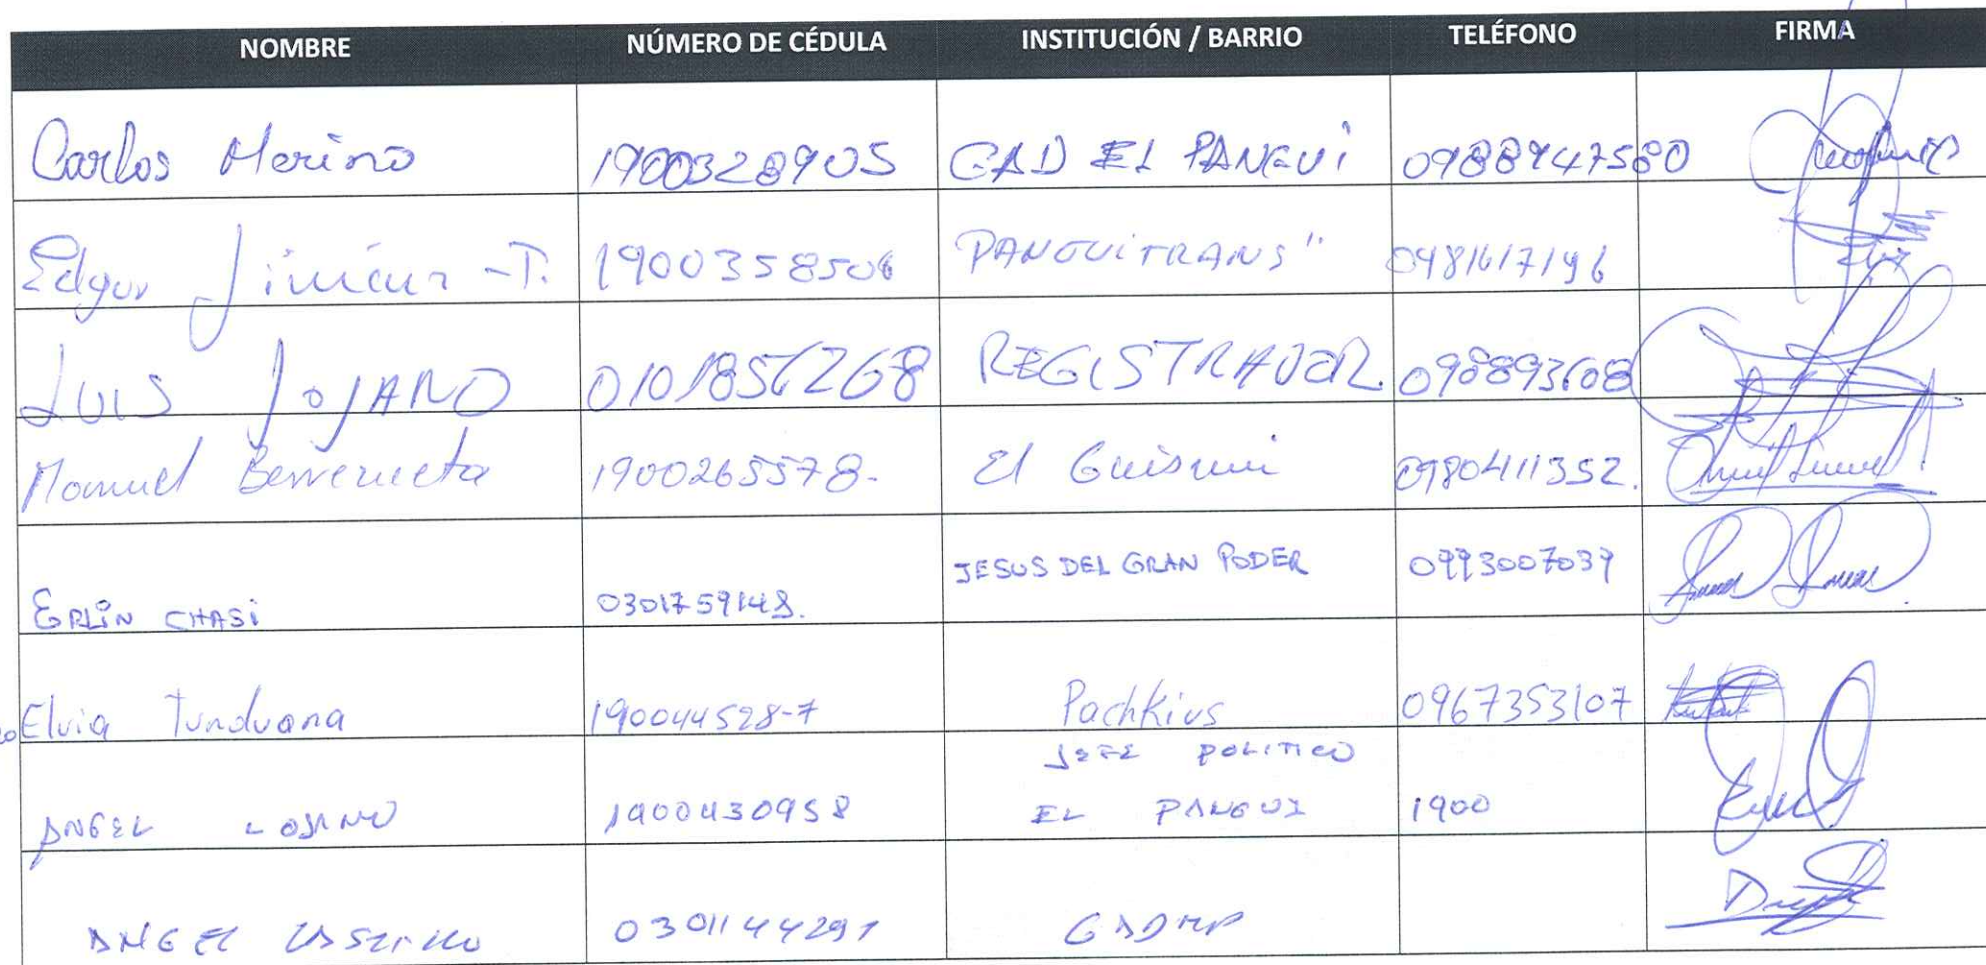 NOMBRE NÚMERO DE CÉDULA INSTITUCIÓN / BARRIO TELÉFONO FIRMA
Carlos Merino 1900328905 GAD EL PANGUI 0988947580
Edgar Jiménez T. 1900358506 PANGUITRANS" 0981617196
LUIS LOJANO 0101856268 REGISTRADOR. 098893608
Manuel Berrezueta 1900265578. El Guismi 0980411352.
ERLIN CHASI 0301759148. JESUS DEL GRAN PODER 0993007039
Elvia Tunduana 190044528-7 Pachkius 0967353107
JEFE POLITICO
ANGEL LOJANO 1900430958 EL PANGUI 1900
ANGEL 0301144291 GADMP